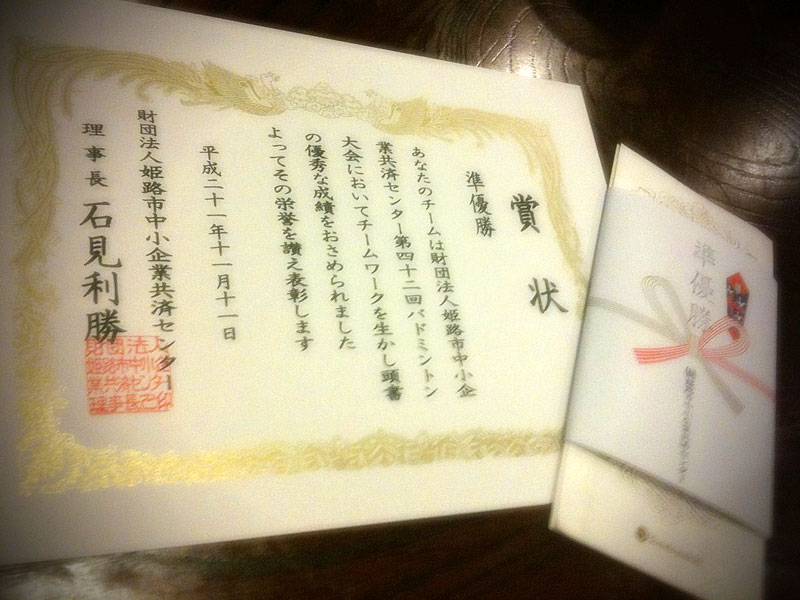 賞状
準優勝
あなたのチームは財団法人姫路市中小企
業共済センター第四十二回バドミントン
大会においてチームワークを生かし頭書
の優秀な成績をおさめられました
よってその栄誉を讃え表彰します
平成二十一年十一月十一日
財団法人姫路市中小企業共済センター
理事長 石見利勝
準優勝